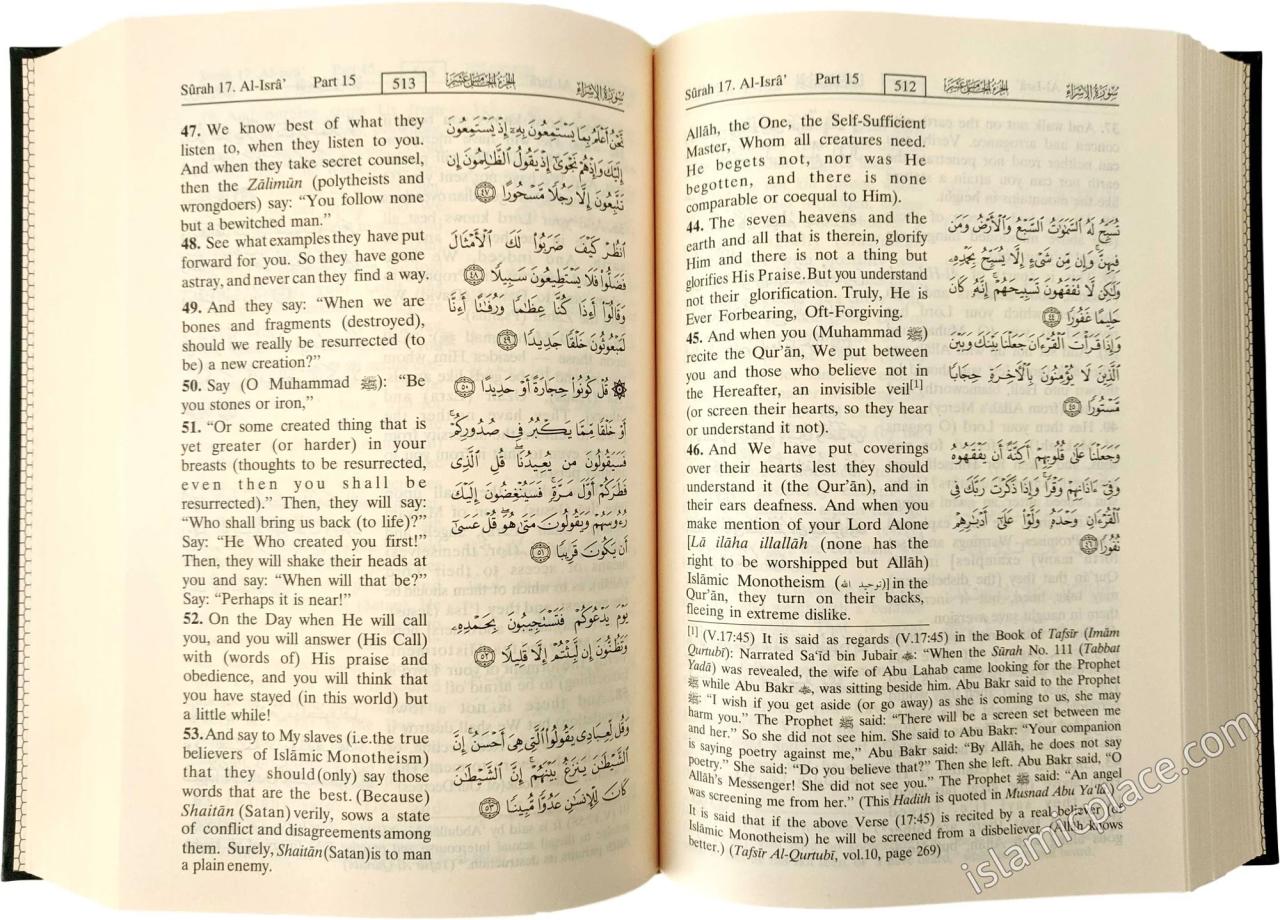 Sûrah 17. Al-Isrâ’ Part 15 512 الجزء الخامس عشر سورة الإسراء
Allāh, the One, the Self-Sufficient
Master, Whom all creatures need.
He begets not, nor was He
begotten, and there is none
comparable or coequal to Him).
44. The seven heavens and the
earth and all that is therein, glorify
Him and there is not a thing but
glorifies His Praise. But you understand
not their glorification. Truly, He is
Ever Forbearing, Oft-Forgiving.
45. And when you (Muhammad ﷺ)
recite the Qur’ān, We put between
you and those who believe not in
the Hereafter, an invisible veil[1]
(or screen their hearts, so they hear
or understand it not).
46. And We have put coverings
over their hearts lest they should
understand it (the Qur’ān), and in
their ears deafness. And when you
make mention of your Lord Alone
[Lā ilāha illallāh (none has the
right to be worshipped but Allāh)
Islāmic Monotheism (توحيد الله)] in the
Qur’ān, they turn on their backs,
fleeing in extreme dislike.
تُسَبِّحُ لَهُ ٱلسَّمَٰوَٰتُ ٱلسَّبْعُ وَٱلْأَرْضُ وَمَن
فِيهِنَّ ۚ وَإِن مِّن شَىْءٍ إِلَّا يُسَبِّحُ بِحَمْدِهِۦ
وَلَٰكِن لَّا تَفْقَهُونَ تَسْبِيحَهُمْ ۗ إِنَّهُۥ كَانَ
حَلِيمًا غَفُورًا ٤٤
وَإِذَا قَرَأْتَ ٱلْقُرْءَانَ جَعَلْنَا بَيْنَكَ وَبَيْنَ
ٱلَّذِينَ لَا يُؤْمِنُونَ بِٱلْءَاخِرَةِ حِجَابًا
مَّسْتُورًا ٤٥
وَجَعَلْنَا عَلَىٰ قُلُوبِهِمْ أَكِنَّةً أَن يَفْقَهُوهُ
وَفِىٓ ءَاذَانِهِمْ وَقْرًا ۚ وَإِذَا ذَكَرْتَ رَبَّكَ فِى
ٱلْقُرْءَانِ وَحْدَهُۥ وَلَّوْا۟ عَلَىٰٓ أَدْبَٰرِهِمْ
نُفُورًا ٤٦
[1] (V.17:45) It is said as regards (V.17:45) in the Book of Tafsīr (Imām
Qurtubī): Narrated Sa‘īd bin Jubair: “When the Sūrah No. 111 (Tabbat
Yadā) was revealed, the wife of Abu Lahab came looking for the Prophet
ﷺ while Abu Bakr, was sitting beside him. Abu Bakr said to the Prophet
ﷺ: “I wish if you get aside (or go away) as she is coming to us, she may
harm you.” The Prophet ﷺ said: “There will be a screen set between me
and her.” So she did not see him. She said to Abu Bakr: “Your companion
is saying poetry against me,” Abu Bakr said: “By Allāh, he does not say
poetry.” She said: “Do you believe that?” Then she left. Abu Bakr said, “O
Allāh’s Messenger! She did not see you.” The Prophet ﷺ said: “An angel
was screening me from her.” (This Hadith is quoted in Musnad Abu Ya‘lā.)
It is said that if the above Verse (17:45) is recited by a real believer (of
Islāmic Monotheism) he will be screened from a disbeliever. (Allāh knows
better.) (Tafsīr Al-Qurtubī, vol.10, page 269)
Sûrah 17. Al-Isrâ’ Part 15 513 الجزء الخامس عشر سورة الإسراء
47. We know best of what they
listen to, when they listen to you.
And when they take secret counsel,
then the Zālimūn (polytheists and
wrongdoers) say: “You follow none
but a bewitched man.”
48. See what examples they have put
forward for you. So they have gone
astray, and never can they find a way.
49. And they say: “When we are
bones and fragments (destroyed),
should we really be resurrected (to
be) a new creation?”
50. Say (O Muhammad ﷺ): “Be
you stones or iron,”
51. “Or some created thing that is
yet greater (or harder) in your
breasts (thoughts to be resurrected,
even then you shall be
resurrected).” Then, they will say:
“Who shall bring us back (to life)?”
Say: “He Who created you first!”
Then, they will shake their heads at
you and say: “When will that be?”
Say: “Perhaps it is near!”
52. On the Day when He will call
you, and you will answer (His Call)
with (words of) His praise and
obedience, and you will think that
you have stayed (in this world) but
a little while!
53. And say to My slaves (i.e.the true
believers of Islāmic Monotheism)
that they should (only) say those
words that are the best. (Because)
Shaitān (Satan) verily, sows a state
of conflict and disagreements among
them. Surely, Shaitān (Satan) is to man
a plain enemy.
نَّحْنُ أَعْلَمُ بِمَا يَسْتَمِعُونَ بِهِۦٓ إِذْ يَسْتَمِعُونَ
إِلَيْكَ وَإِذْ هُمْ نَجْوَىٰٓ إِذْ يَقُولُ ٱلظَّٰلِمُونَ إِن
تَتَّبِعُونَ إِلَّا رَجُلًا مَّسْحُورًا ٤٧
ٱنظُرْ كَيْفَ ضَرَبُوا۟ لَكَ ٱلْأَمْثَالَ
فَضَلُّوا۟ فَلَا يَسْتَطِيعُونَ سَبِيلًا ٤٨
وَقَالُوٓا۟ أَءِذَا كُنَّا عِظَٰمًا وَرُفَٰتًا أَءِنَّا
لَمَبْعُوثُونَ خَلْقًا جَدِيدًا ٤٩
۞ قُلْ كُونُوا۟ حِجَارَةً أَوْ حَدِيدًا ٥٠
أَوْ خَلْقًا مِّمَّا يَكْبُرُ فِى صُدُورِكُمْ ۚ
فَسَيَقُولُونَ مَن يُعِيدُنَا ۖ قُلِ ٱلَّذِى
فَطَرَكُمْ أَوَّلَ مَرَّةٍ ۚ فَسَيُنْغِضُونَ إِلَيْكَ
رُءُوسَهُمْ وَيَقُولُونَ مَتَىٰ هُوَ ۖ قُلْ عَسَىٰٓ
أَن يَكُونَ قَرِيبًا ٥١
يَوْمَ يَدْعُوكُمْ فَتَسْتَجِيبُونَ بِحَمْدِهِۦ
وَتَظُنُّونَ إِن لَّبِثْتُمْ إِلَّا قَلِيلًا ٥٢
وَقُل لِّعِبَادِى يَقُولُوا۟ ٱلَّتِى هِىَ أَحْسَنُ ۚ إِنَّ
ٱلشَّيْطَٰنَ يَنزَغُ بَيْنَهُمْ ۚ إِنَّ ٱلشَّيْطَٰنَ
كَانَ لِلْإِنسَٰنِ عَدُوًّا مُّبِينًا ٥٣
islamicplace.com